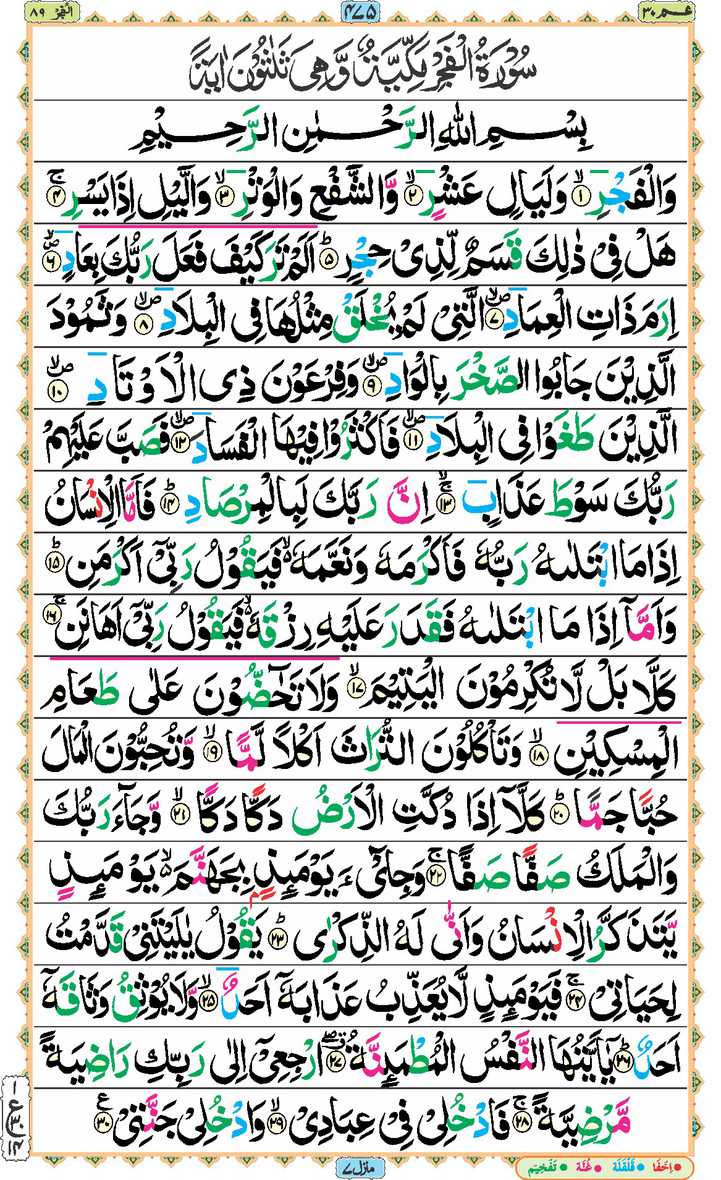 عم ٣٠
٤٧٥
الفجر ٨٩
سُوْرَةُ الْفَجْرِ مَكِّيَّةٌ وَّهِیَ ثَلٰثُوْنَ اٰیَةً
بِسْمِ اللّٰهِ الرَّحْمٰنِ الرَّحِیْمِ
وَالْفَجْرِۙ ۱ وَلَیَالٍ عَشْرٍۙ ۲ وَّالشَّفْعِ وَالْوَتْرِۙ ۳ وَالَّیْلِ اِذَا یَسْرِۚ ۴
هَلْ فِیْ ذٰلِكَ قَسَمٌ لِّذِیْ حِجْرٍؕ ۵ اَلَمْ تَرَ كَیْفَ فَعَلَ رَبُّكَ بِعَادٍ ۶
اِرَمَ ذَاتِ الْعِمَادِ ۷ الَّتِیْ لَمْ یُخْلَقْ مِثْلُهَا فِی الْبِلَادِ ۸ وَثَمُوْدَ
الَّذِیْنَ جَابُوا الصَّخْرَ بِالْوَادِ ۹ وَفِرْعَوْنَ ذِی الْاَوْتَادِ ۱۰
الَّذِیْنَ طَغَوْا فِی الْبِلَادِ ۱۱ فَاَكْثَرُوْا فِیْهَا الْفَسَادَ ۱۲ فَصَبَّ عَلَیْهِمْ
رَبُّكَ سَوْطَ عَذَابٍۚۙ ۱۳ اِنَّ رَبَّكَ لَبِالْمِرْصَادِؕ ۱۴ فَاَمَّا الْاِنْسَانُ
اِذَا مَا ابْتَلٰىهُ رَبُّهٗ فَاَكْرَمَهٗ وَنَعَّمَهٗ۬ۙ فَیَقُوْلُ رَبِّیْۤ اَكْرَمَنِؕ ۱۵
وَاَمَّاۤ اِذَا مَا ابْتَلٰىهُ فَقَدَرَ عَلَیْهِ رِزْقَهٗ۬ۙ فَیَقُوْلُ رَبِّیْۤ اَهَانَنِۚ ۱۶
كَلَّا بَلْ لَّا تُكْرِمُوْنَ الْیَتِیْمَۙ ۱۷ وَلَا تَحٰٓضُّوْنَ عَلٰى طَعَامِ
الْمِسْكِیْنِۙ ۱۸ وَتَاْكُلُوْنَ التُّرَاثَ اَكْلًا لَّمًّاۙ ۱۹ وَّتُحِبُّوْنَ الْمَالَ
حُبًّا جَمًّاؕ ۲۰ كَلَّاۤ اِذَا دُكَّتِ الْاَرْضُ دَكًّا دَكًّاۙ ۲۱ وَّجَآءَ رَبُّكَ
وَالْمَلَكُ صَفًّا صَفًّاۚ ۲۲ وَجِایْٓءَ یَوْمَىِٕذٍۭ بِجَهَنَّمَ۬ۙ یَوْمَىِٕذٍ
یَّتَذَكَّرُ الْاِنْسَانُ وَاَنّٰى لَهُ الذِّكْرٰىؕ ۲۳ یَقُوْلُ یٰلَیْتَنِیْ قَدَّمْتُ
لِحَیَاتِیْۚ ۲۴ فَیَوْمَىِٕذٍ لَّا یُعَذِّبُ عَذَابَهٗۤ اَحَدٌۙ ۲۵ وَّلَا یُوْثِقُ وَثَاقَهٗۤ
اَحَدٌؕ ۲۶ یٰۤاَیَّتُهَا النَّفْسُ الْمُطْمَىِٕنَّةُ ۲۷ ارْجِعِیْۤ اِلٰى رَبِّكِ رَاضِیَةً
مَّرْضِیَّةًۚ ۲۸ فَادْخُلِیْ فِیْ عِبٰدِیْۙ ۲۹ وَادْخُلِیْ جَنَّتِیْ ۳۰
منزل ٧
اخفا • قلقلة • غنّة • تفخیم